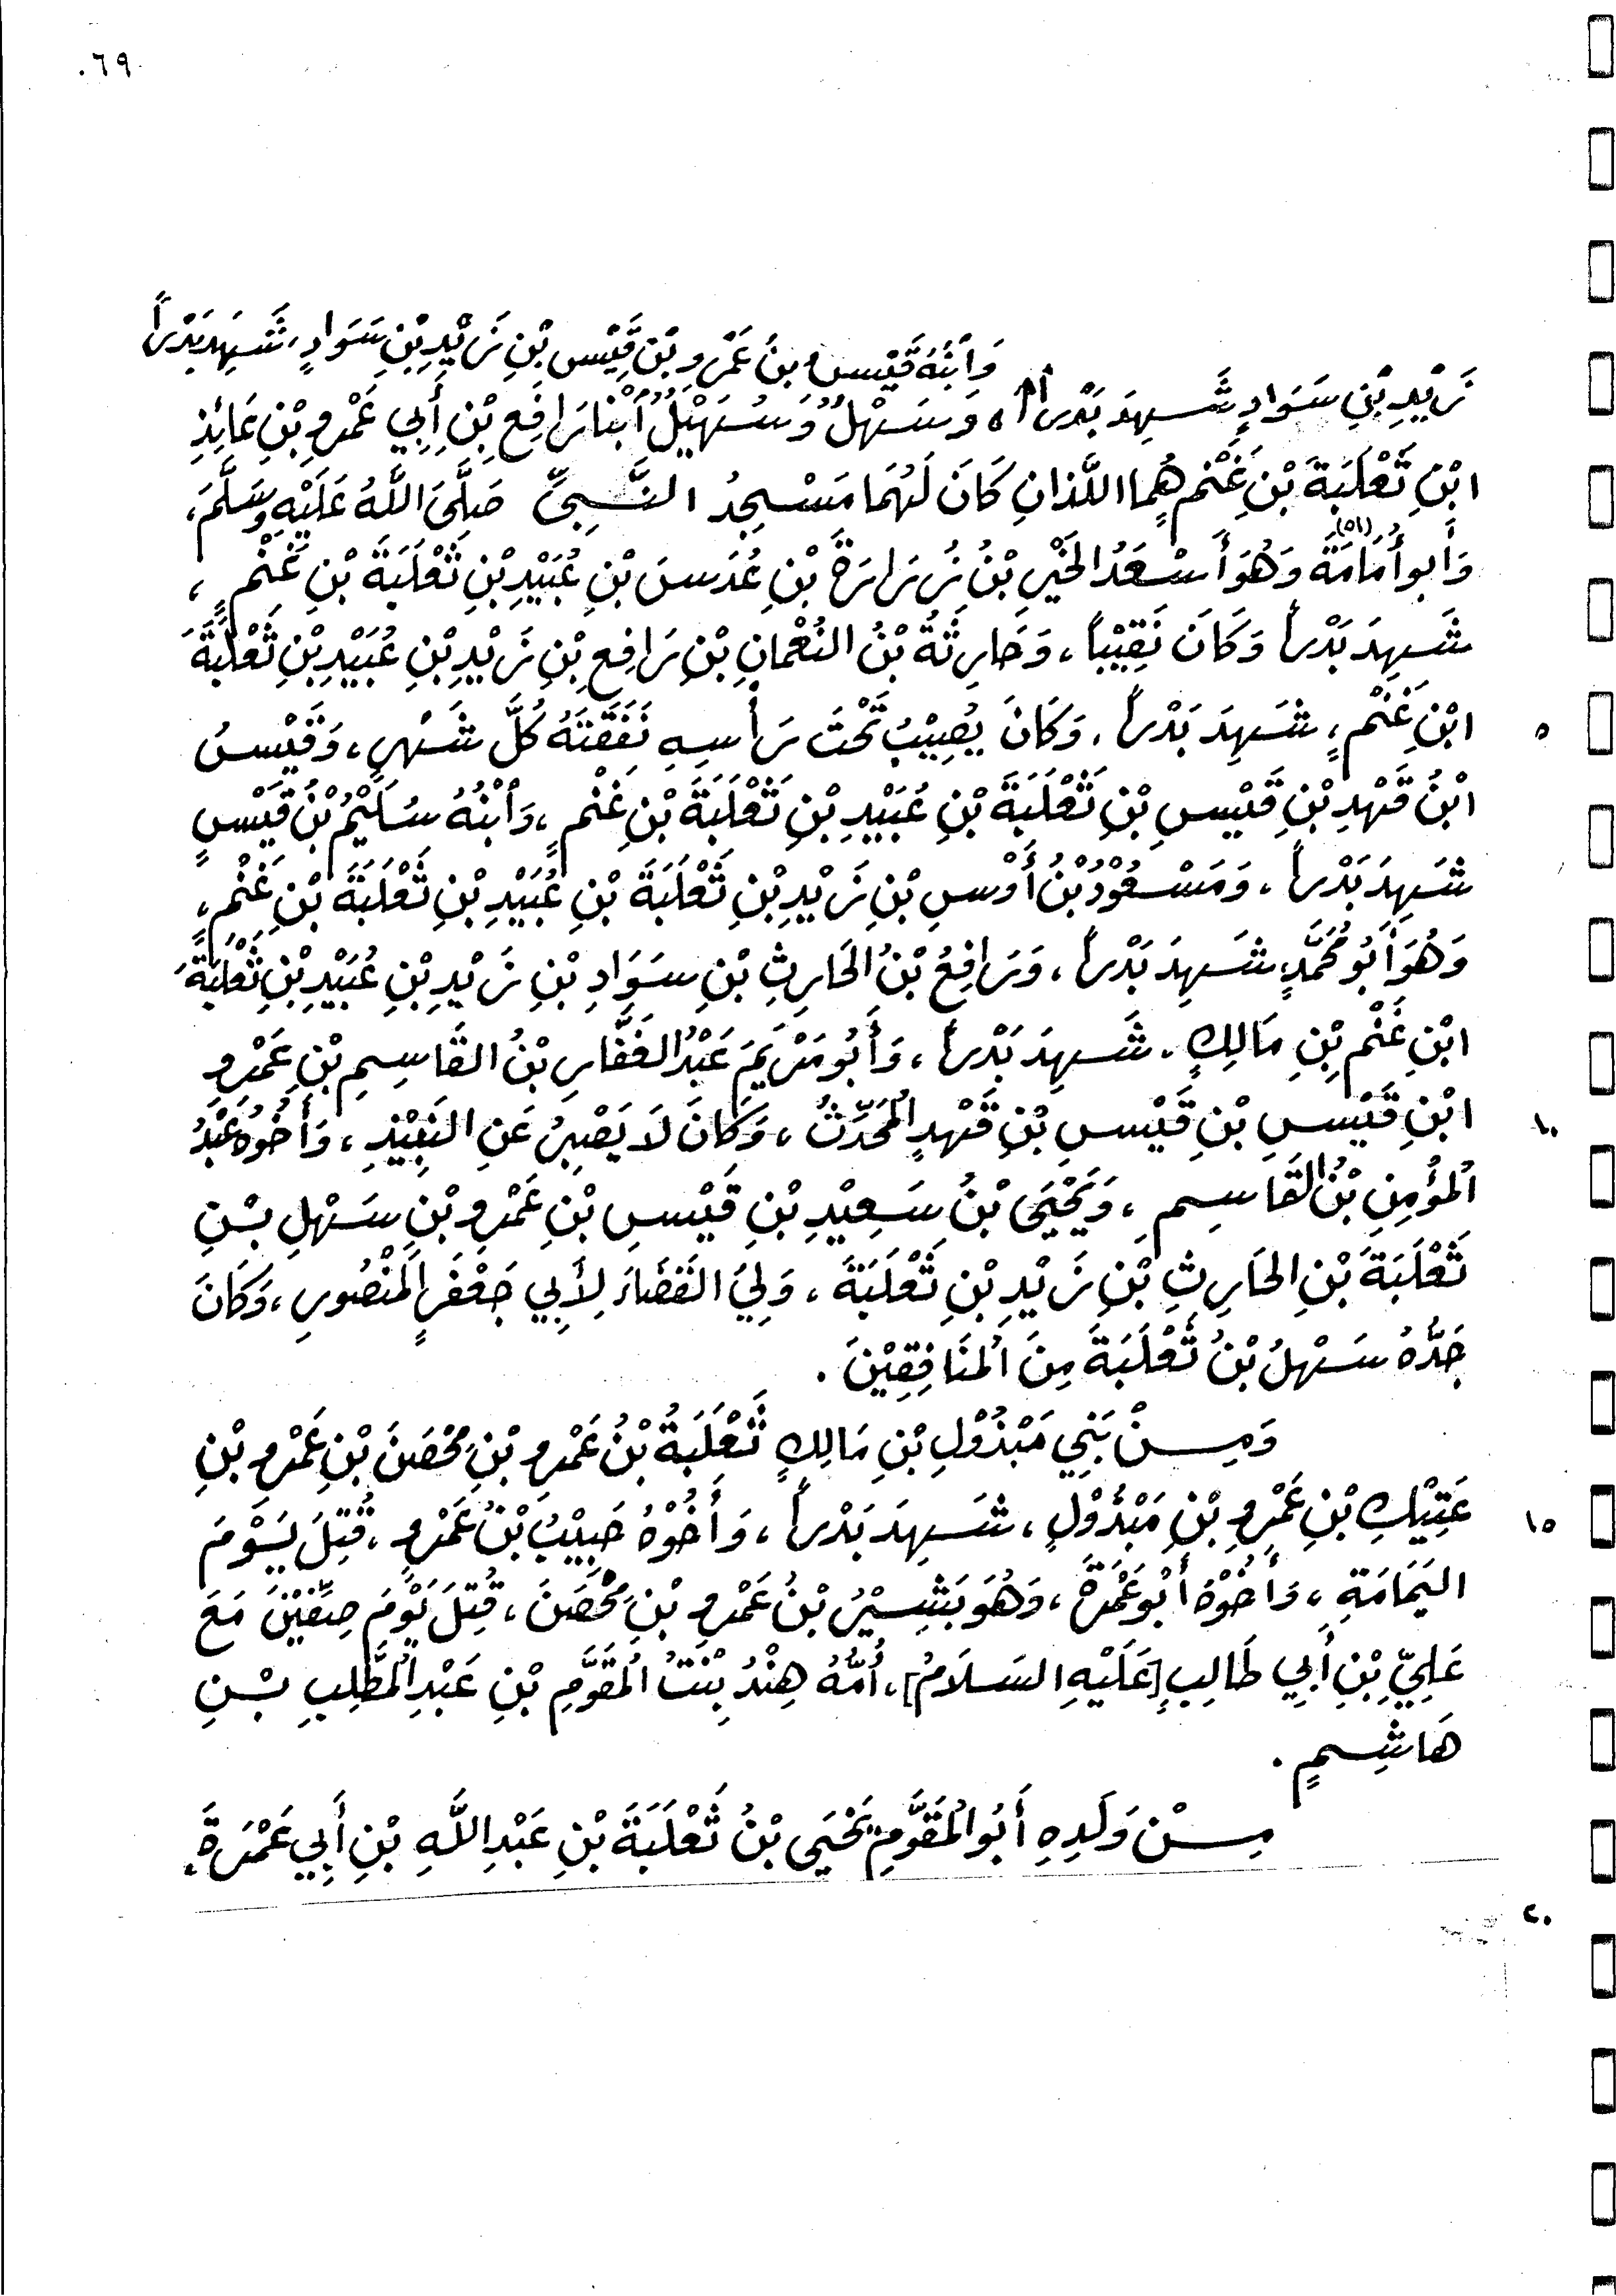 ٦٩٠
وَٱبْنُهُ قَيْسُ بنُ عَمْرِو بْنِ قَيْسِ بْنِ زَيْدِ بْنِ سَوَادٍ، شَهِدَ بَدْراً
زَيْدِ بْنِ سَوَادٍ شَهِدَ بَدْراً، وَسَهْلٌ وَسُهَيْلٌ ٱبْنَا رَافِعِ بْنِ أَبِي عَمْرِو بْنِ عَائِذِ
ابْنِ ثَعْلَبَةَ بْنِ غَنْمٍ هُمَا اللَّذانِ كَانَ لَهُمَا مَسْجِدُ النَّبِيِّ صَلَّىَ اللَّهُ عَلَيْهِ وَسَلَّمَ،
وَأَبو أُمَامَةَ (٥١) وَهُوَ أَسْعَدُ الخَيْرِ بْنُ زُرَارَةَ بْنِ عُدَسَ بْنِ عُبَيْدِ بْنِ ثَعْلَبَةَ بْنِ غَنْمٍ،
شَهِدَ بَدْراً وَكَانَ نَقِيْباً، وَحَارِثَةُ بْنُ النُعْمانِ بْنِ رَافِعِ بْنِ زَيْدِ بْنِ عُبَيْدِ بْنِ ثَعْلَبَةَ
ابْنِ غَنْمٍ، شَهِدَ بَدْراً، وَكَانَ يُصِيْبُ تَحْتَ رَأْسِهِ نَفَقَتَهُ كُلَّ شَهْرٍ، وَقَيْسُ ٥
ابْنُ قَهْدِ بْنِ قَيْسِ بْنِ ثَعْلَبَةَ بْنِ عُبَيْدِ بْنِ ثَعْلَبَةَ بْنِ غَنْمٍ، وَٱبْنُهُ سُلَيْمُ بْنُ قَيْسٍ
شَهِدَ بَدْراً، وَمَسْعُوْدُ بْنُ أَوْسِ بْنِ زَيْدِ بْنِ ثَعْلَبَةَ بْنِ عُبَيْدِ بْنِ ثَعْلَبَةَ بْنِ غَنْمٍ،
وَهُوَ أَبُو مُحَمَّدٍ شَهِدَ بَدْراً، وَرَافِعُ بْنُ الحَارِثِ بْنِ سَوَادِ بْنِ زَيْدِ بْنِ عُبَيْدِ بْنِ ثَعْلَبَةَ
ابْنِ غَنْمِ بْنِ مَالِكٍ. شَهِدَ بَدْراً، وَأَبُو مَرْيَمَ عَبْدُ الغَفَّارِ بْنُ القَاسِمِ بْنِ عَمْرِو
ابْنِ قَيْسِ بْنِ قَيْسِ بْنِ قَهْدٍ المُحَدِّثُ، وَكَانَ لَا يَصْبِرُ عَنِ النَبِيْذِ، وَأَخُوْهُ عَبْدُ ١٠
المُؤْمِنِ بْنُ القَاسِمِ، وَيَحْيَى بْنُ سَعِيْدِ بْنِ قَيْسِ بْنِ عَمْرِو بْنِ سَهْلِ بْنِ
ثَعْلَبَةَ بْنِ الحَارِثِ بْنِ زَيْدِ بْنِ ثَعْلَبَةَ، وَلِيَ القَضَاءَ لِأَبِي جَعْفَرٍ المَنْصُورِ، وَكَانَ
جَدُّهُ سَهْلُ بْنُ ثَعْلَبَةَ مِنَ المُنَافِقِيْنَ.
وَمِنْ بَنِي مَبْذُوْلِ بْنِ مَالِكٍ ثَعْلَبَةُ بْنُ عَمْرِو بْنِ مِحْصَنَ بْنِ عَمْرِو بْنِ
عَتِيْكِ بْنِ عَمْرِو بْنِ مَبْذُوْلٍ، شَهِدَ بَدْراً، وَأَخُوْهُ حَبِيْبُ بْنُ عَمْرٍو، قُتِلَ يَوْمَ ١٥
اليَمَامَةِ، وَأَخُوْهُ أَبُو عَمْرَةَ، وَهُوَ بَشِيْرُ بْنُ عَمْرِو بْنِ مِحْصَنَ، قُتِلَ يَوْمَ صِفِّيْنَ مَعَ
عَلِيِّ بْنِ أَبِي طَالِبٍ [عَلَيْهِ السَلَامُ]، أُمُّهُ هِنْدُ بِنْتُ المُقَوَّمِ بْنِ عَبْدِ المُطَّلِبِ بْنِ
هَاشِمٍ.
مِنْ وَلَدِهِ أَبُو المُقَوَّمِ يَحْيَى بْنُ ثَعْلَبَةَ بْنِ عَبْدِ اللَّهِ بْنِ أَبِي عَمْرَةَ.
٢٠